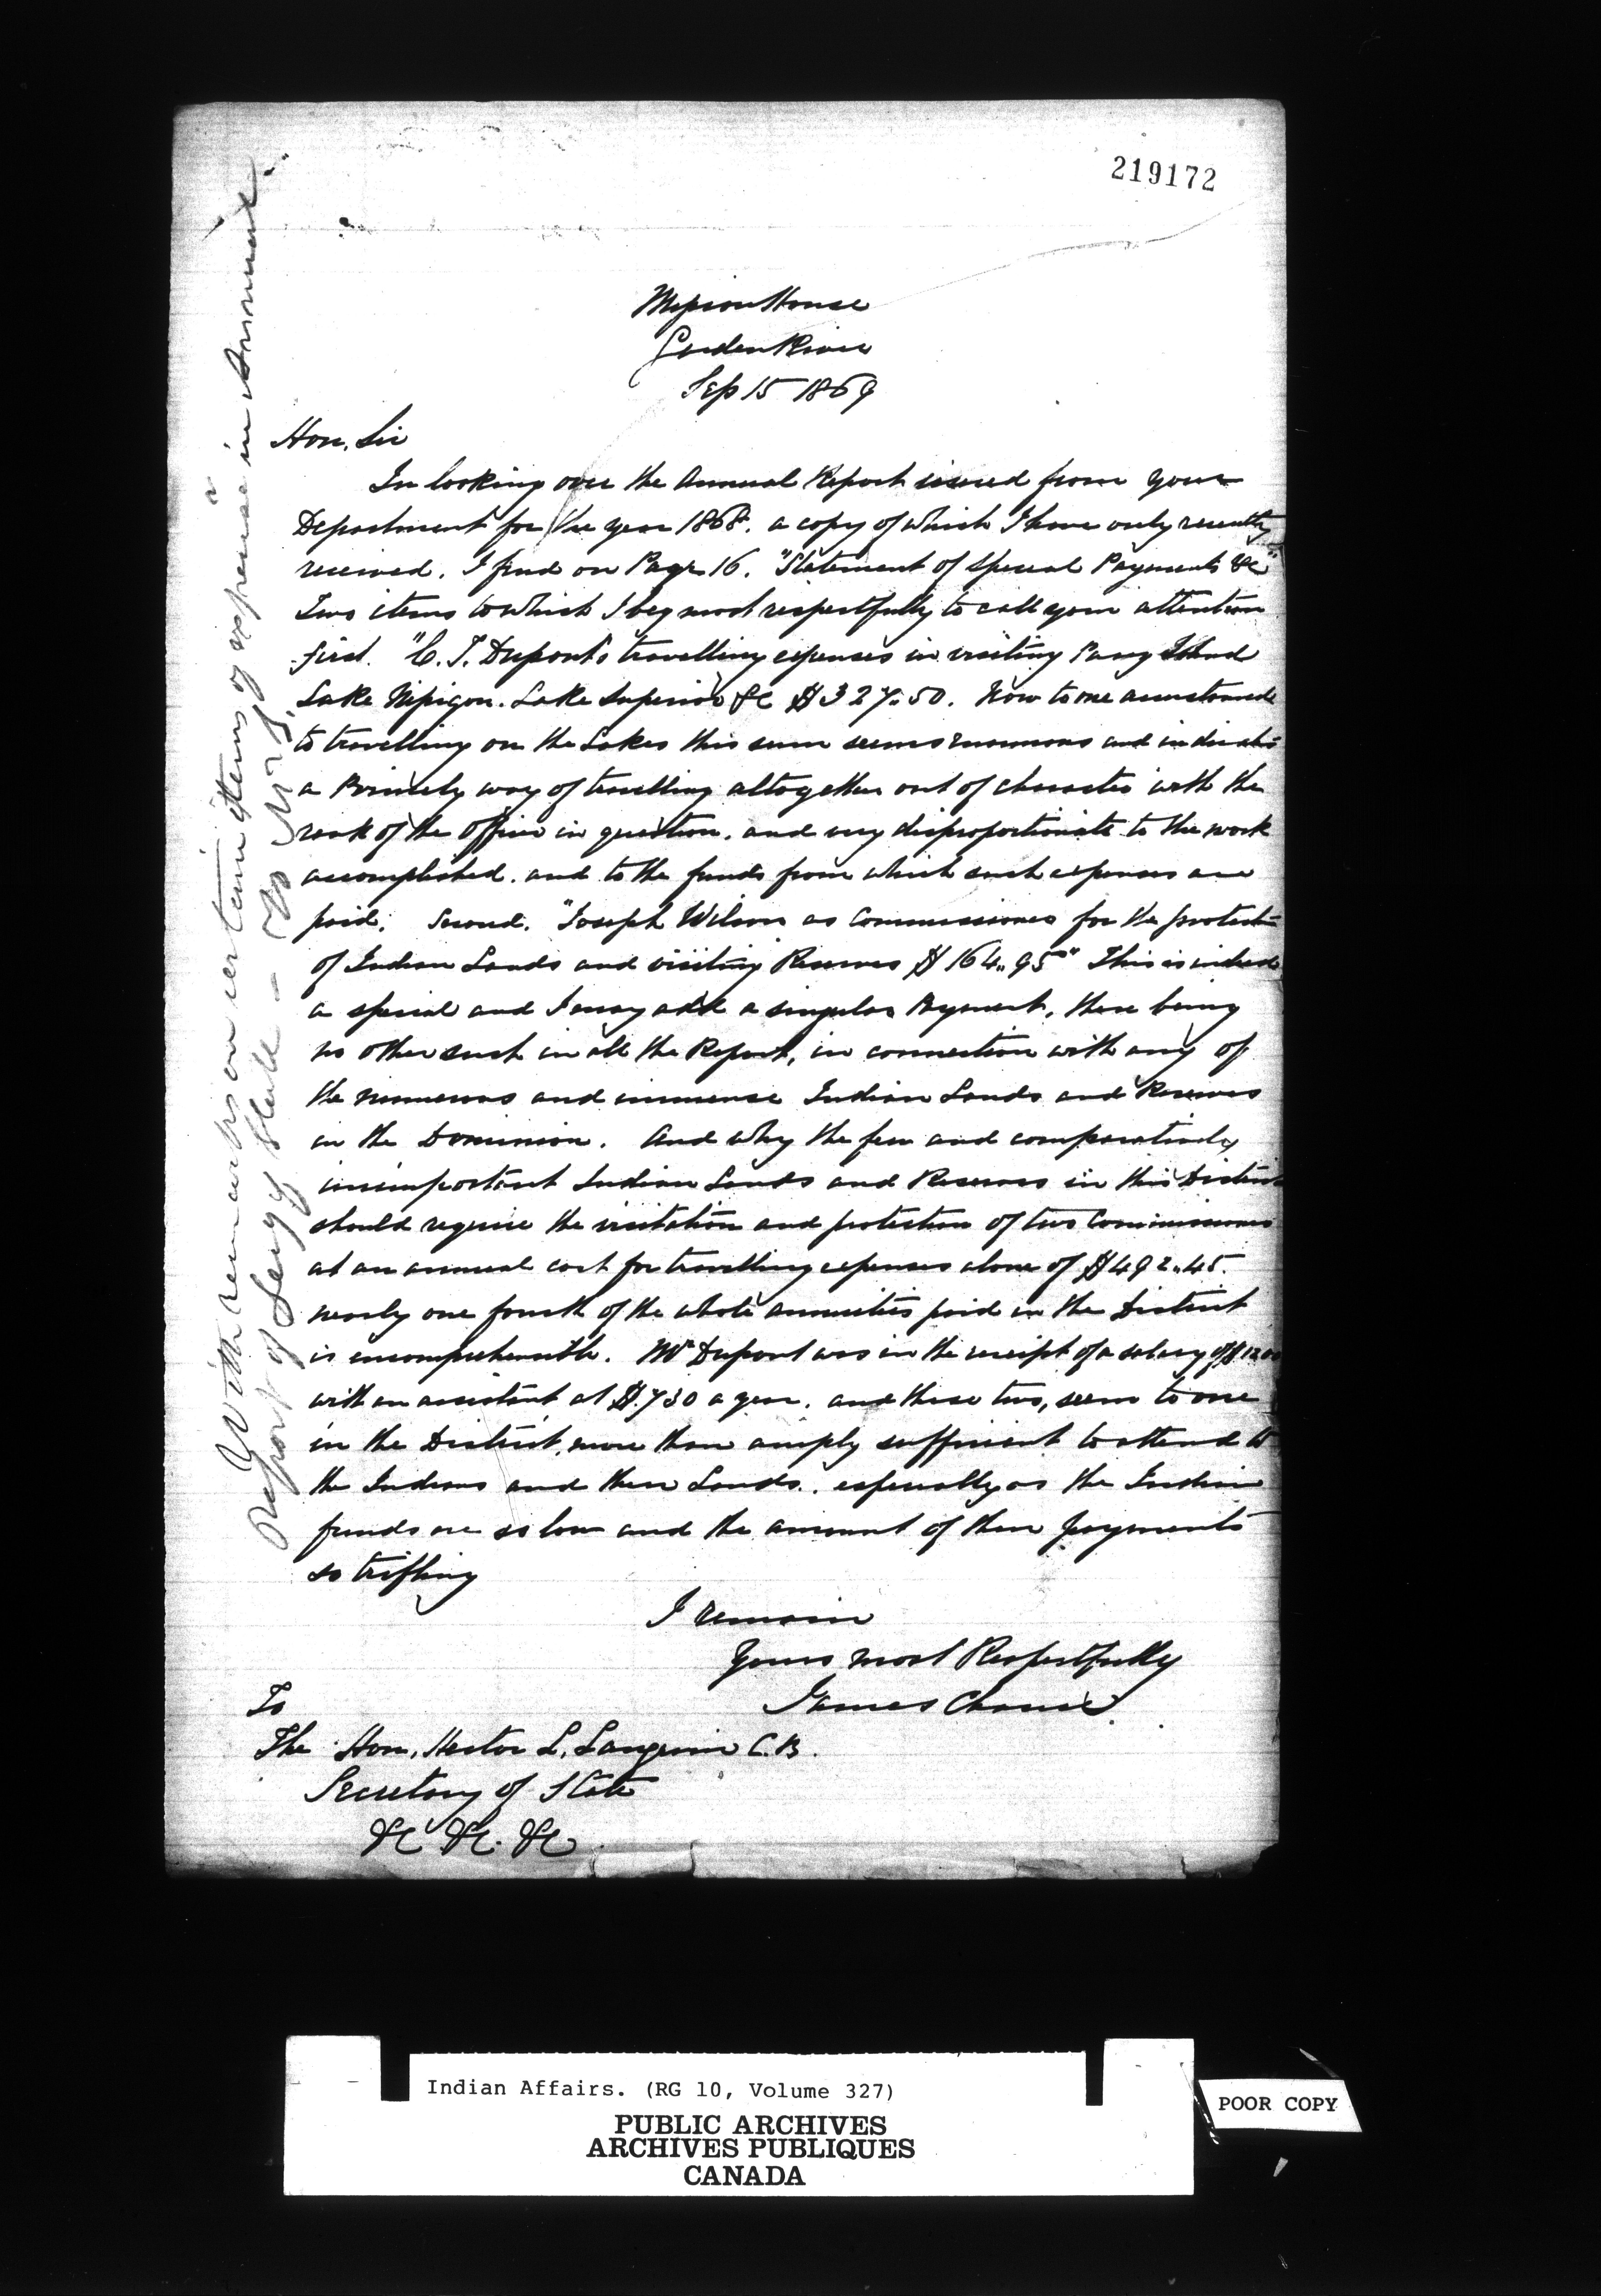 219172
Mission House
Garden River
Sep 15 1869
Hon. Sir
In looking over the Annual Report issued from your
Department for the year 1868. a copy of which I have only recently
received. I find on Page 16. "Statement of Special Payments &c"
Two items to which I beg most respectfully to call your attention
first. "C. T. Dupont's travelling expenses in visiting Parry Island
Lake Nipigon. Lake Superior &c $327.50. Now to one accustomed
to travelling on the Lakes this sum seems enormous and indicates
a Princely way of travelling altogether out of character with the
rank of the Officer in question. and very disproportionate to the work
accomplished. and to the funds from which such expenses are
paid. Second. "Joseph Wilson as Commissioner for the protect
of Indian Lands and visiting Reserves $164.95" This is indeed
a special and I may add a singular Payment, there being
no other such in all the Report, in connection with any of
the numerous and immense Indian Lands and Reserves
in the Dominion. And why the few and comparatively
unimportant Indian Lands and Reserves in this District
should require the visitation and protection of two Commissioners
at an annual cost for travelling expenses alone of $492.45.
nearly one fourth of the whole annuities paid in the District
is incomprehensible. Mr Dupont was in the receipt of a salary of $1200
with an assistant at $730 a year. and these two, seem to one
in the District, more than amply sufficient to attend to
the Indians and their Lands. especially as the Indian
funds are so low and the amount of their payments
so trifling
I remain
Yours most Respectfully
James Chance
To
The Hon. Hector L. Langevin C.B.
Secretary of State
&c &c. &c
With remarks on certain items of expense in Annual
Report of Secy of State
Indian Affairs. (RG 10, Volume 327)
PUBLIC ARCHIVES
ARCHIVES PUBLIQUES
CANADA
POOR COPY